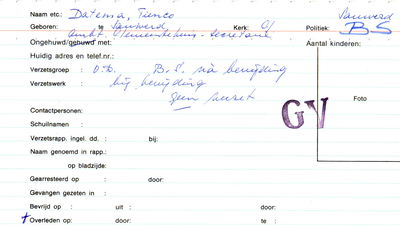 Naam etc: Datema, Tienco Sauwerd
Geboren: te Sauwerd Kerk: Politiek: BS
ambt. Gemeentehuis - secretarie
Ongehuwd/gehuwd met: Aantal kinderen:
Huidig adres en telef.nr.:
Verzetsgroep : O.D. B.S. na bevrijding
Verzetswerk : bij bevrijding
geen verzet
GV
Foto
Contactpersonen:
Schuilnaam :
Verzetsrapp. ingel. dd. : bij:
Naam genoemd in rapp.:
op bladzijde:
Gearresteerd op : door:
Gevangen gezeten in :
Bevrijd op : uit : door:
Overleden op: door: te :